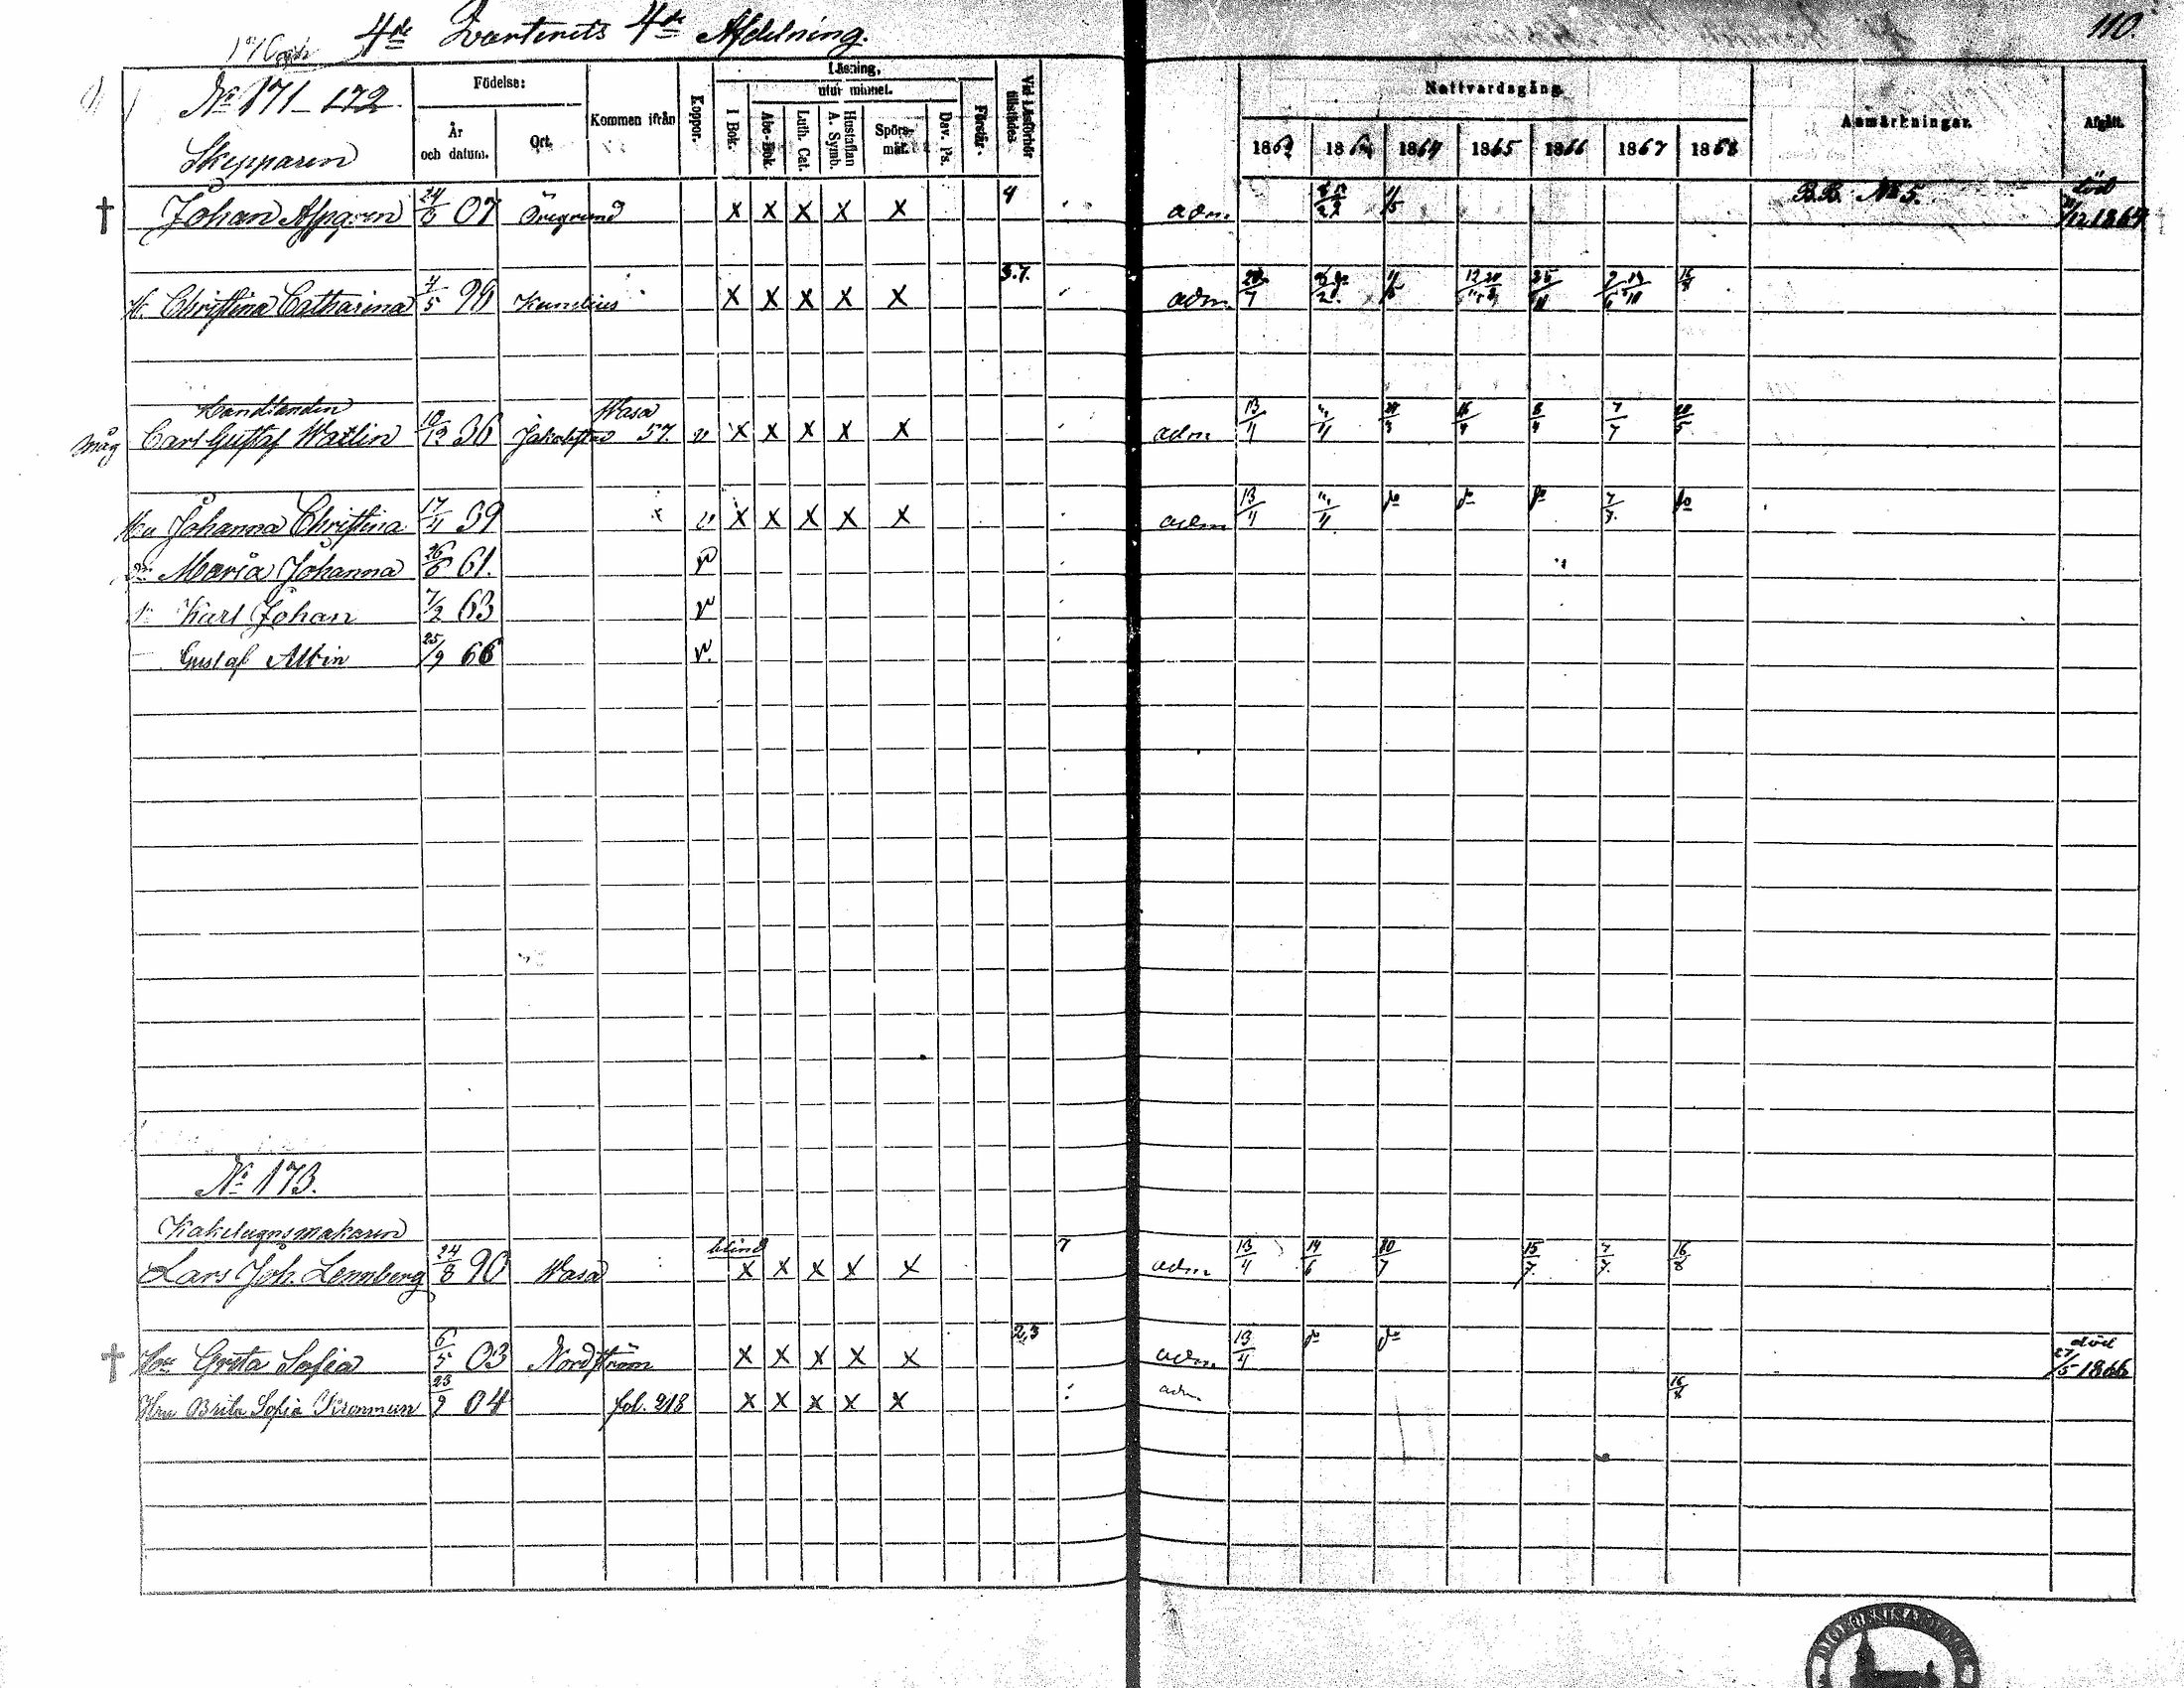 4de Qvarterets 4de Afdelning.
110.
No 171-172.
Skepparen
Födelse:
År och datum.
Ort.
Kommen ifrån
Koppor.
Läsning,
utur minnet.
I Bok.
Abc-Bok.
Luth. Cat.
Hustaflan A. Symb.
Spörsmål.
Dav. Ps.
Förstår.
Vid Läsförhör tillstädes.
Nattvardsgång.
1862 1863 1864 1865 1866 1867 1868
Anmärkningar.
Afgått.
† Johan Aspgren 24/6 07 Öregrund X X X X X 4 adm. 4/5 B.B. No 5. död /12 1864
H. Christina Catharina 4/5 99 Kumlius X X X X X 3.7. adm. 4/5
Handlanden Wasa
Måg Carl Gustaf Watlin 10/12 36 Jakobstad 57. v X X X X X adm 13/4 7/7 20/5
Hu Johanna Christina 17/11 39 v X X X X X adm 13/4 do do do 7/7. do
Dr Maria Johanna 26/6 61. v
S. Karl Johan 7/2 63 v
— Gustaf Albin 25/9 66 v.
No 173.
Kakelugnsmakaren
blind
Lars Joh. Lennberg 24/8 90 Wasa X X X X X 7 adm 13/4 14/6 10/7 15/7. 7/7. 16/8
† Hu Greta Sofia 6/5 03 Nordström X X X X X 2,3 adm. 13/4 do do död 27/5 1866
Hu Brita Sofia 23/9 04 fol. 218 X X X X X adm. 16/8